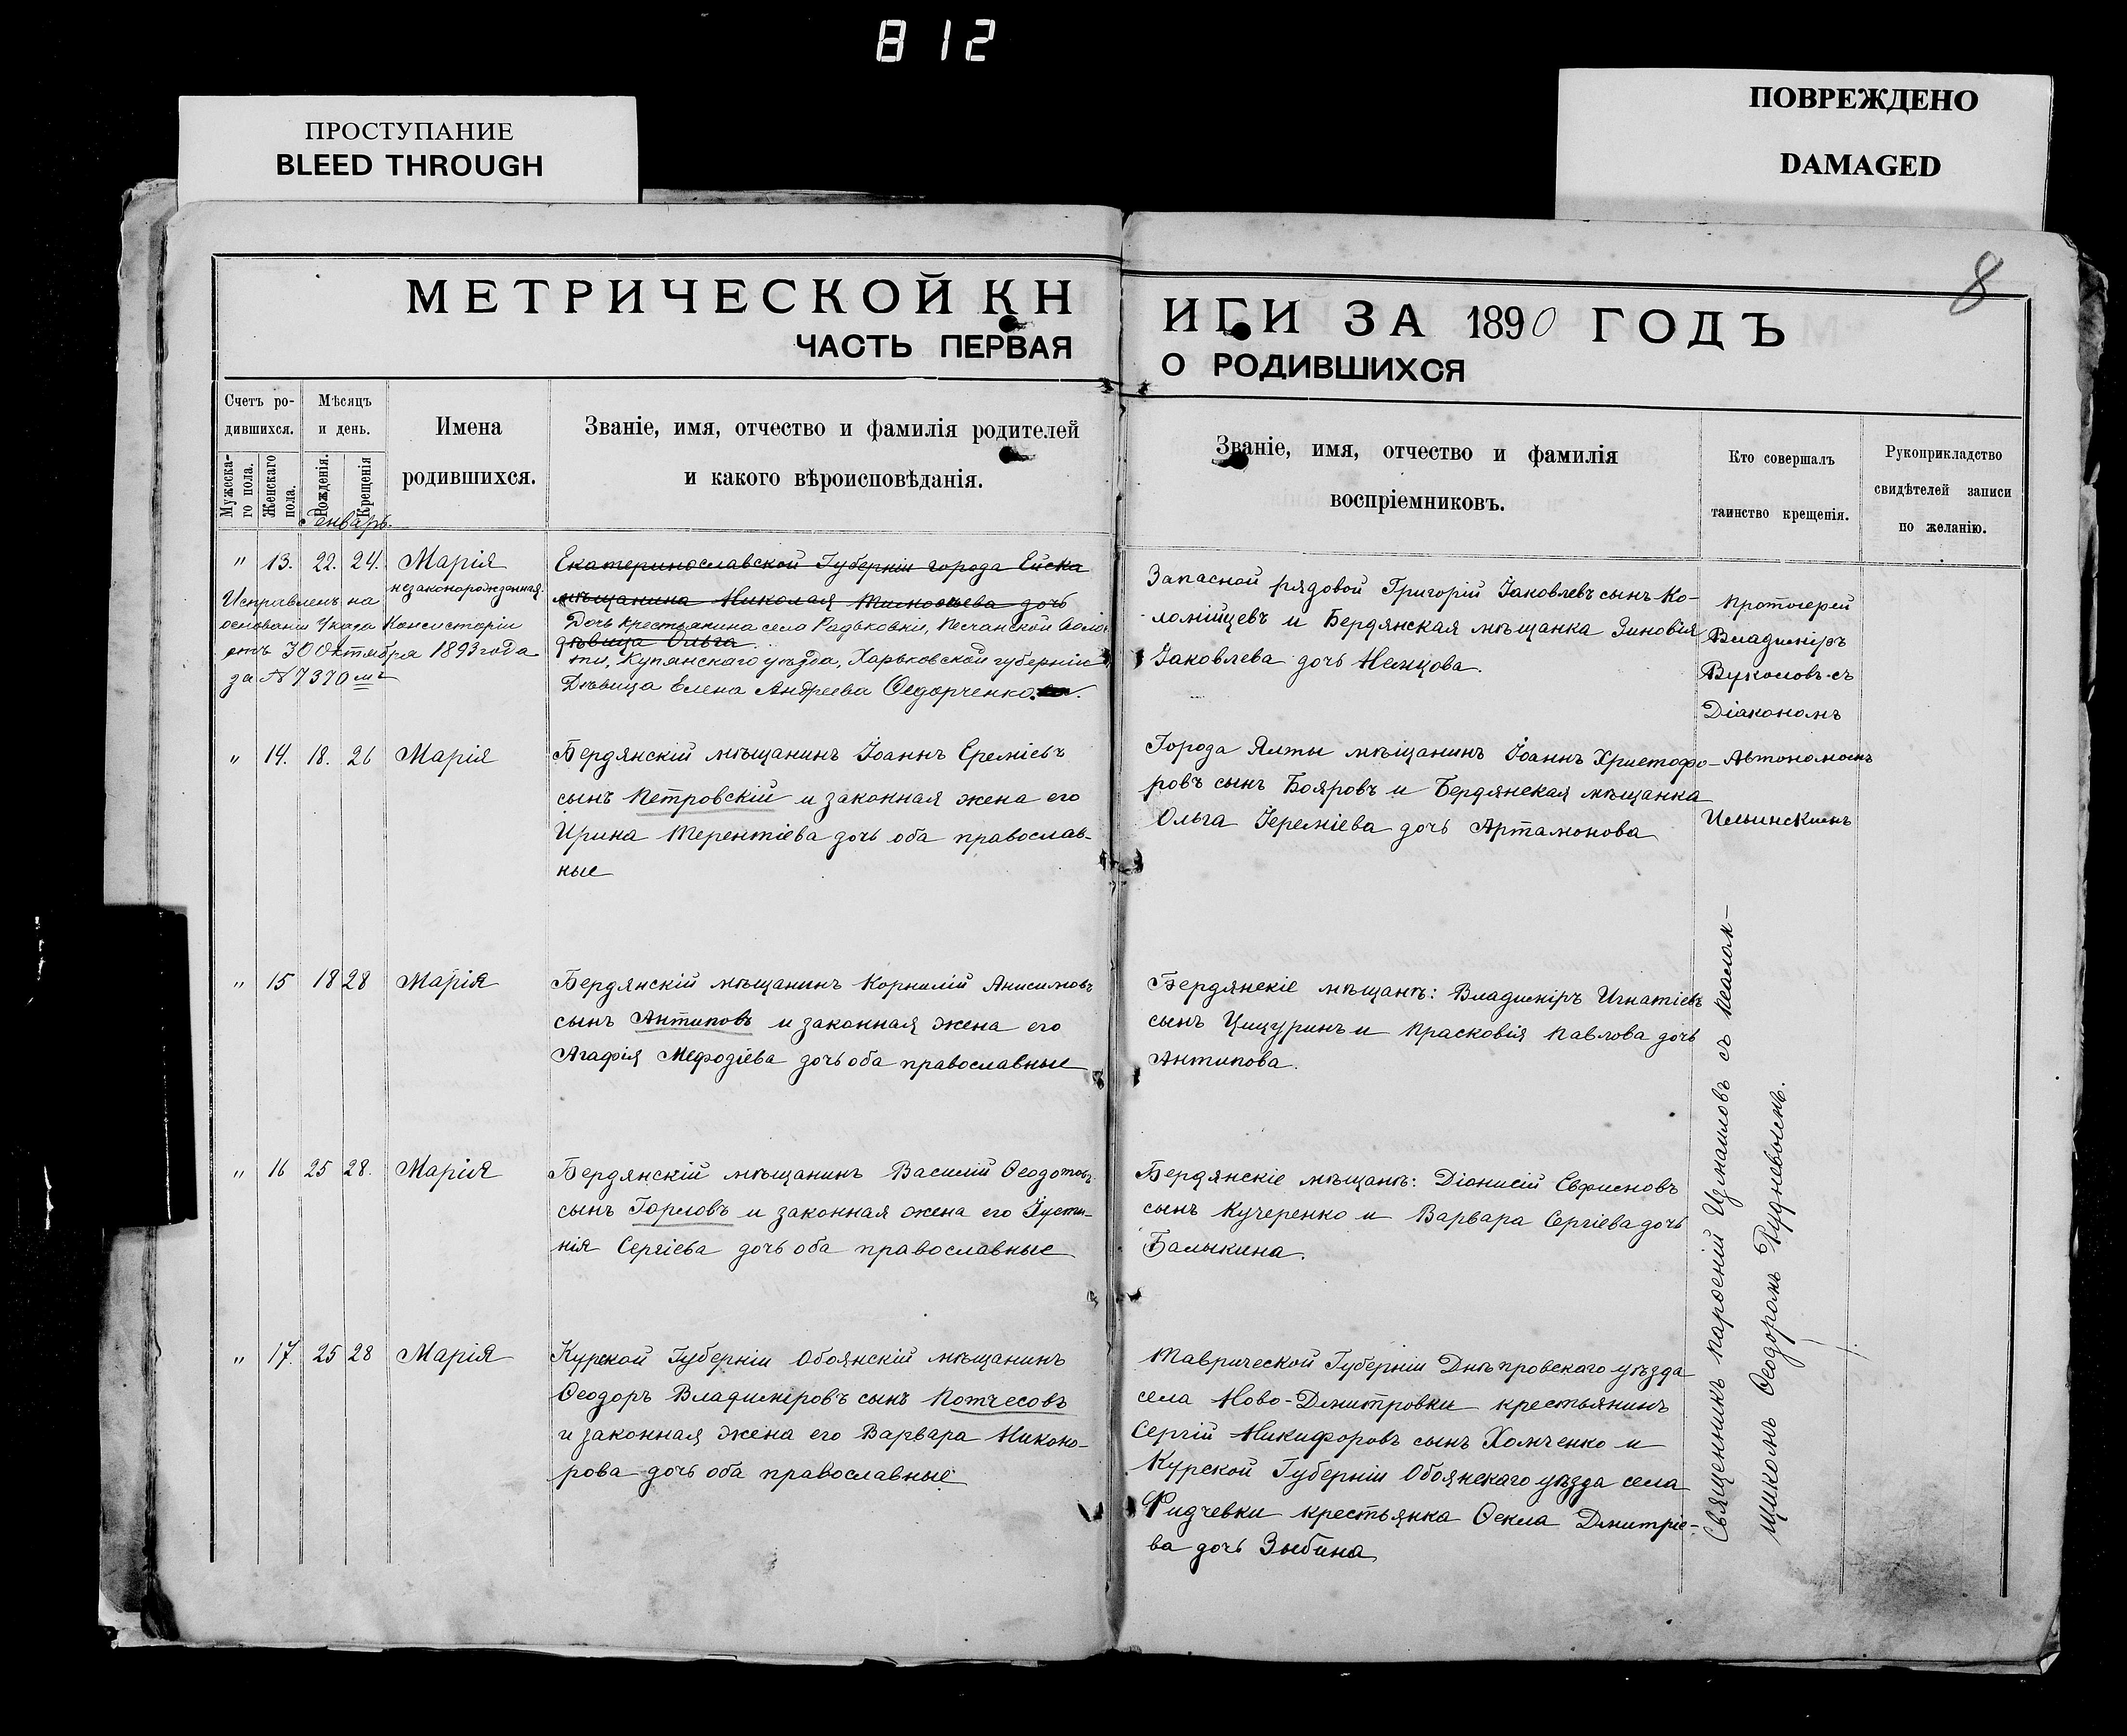 812
ПРОСТУПАНИЕ
BLEED THROUGH
ПОВРЕЖДЕНО
DAMAGED
8
МЕТРИЧЕСКОЙ КН
ИГИ ЗА 1890 ГОДЪ
ЧАСТЬ ПЕРВАЯ
О РОДИВШИХСЯ
Счетъ ро-
дившихся.
Мужеска-
го пола.
Женскаго
пола.
Мѣсяцъ
и день.
Рожденія.
Крещенія
Имена
родившихся.
Званіе, имя, отчество и фамилія родителей
и какого вѣроисповѣданія.
Званіе, имя, отчество и фамилія
воспріемниковъ.
Кто совершалъ
таинство крещенія.
Рукоприкладство
свидѣтелей записи
по желанію.
Генварь.
" 13. 22. 24. Марія
незаконорожденная.
Исправленъ на
основаніи Указа Консисторіи
отъ 30 Октября 1893 года
за № 7370мъ
Екатеринославской Губерніи города Ейска
мѣщанина Николая дочь
Дочь крестьянина села Радьковки, Песчанской Воло-
дѣвица Ольга
сти, Купянскаго уѣзда, Харьковской губерніи
Дѣвица Елена Андреева Ѳедорченко.
Запасной рядовой Григорій Іаковлевъ сынъ Ко-
ломійцевъ и Бердянская мѣщанка Зиновія
Іаковлева дочь Немцова.
Протоіерей
Владиміръ
Вуколовъ съ
Діакономъ
" 14. 18. 26 Марія
Бердянскій мѣщанинъ Іоаннъ Ереміевъ
сынъ Петровскій и законная жена его
Ирина Терентіева дочь оба православ-
ные
Города Ялты мѣщанинъ Іоаннъ Христофо-
ровъ сынъ Бояровъ и Бердянская мѣщанка
Ольга Іереміева дочь Артамонова
Автономомъ
Ильинскимъ
" 15 18 28 Марія
Бердянскій мѣщанинъ Корнилій Анисимовъ
сынъ Антиповъ и законная жена его
Агафія Мефодіева дочь оба православные
Бердянскіе мѣщанѣ: Владиміръ Игнатіевъ
сынъ Цицуринъ и Прасковія Павлова дочь
Антипова.
" 16 25 28. Марія
Бердянскій мѣщанинъ Василій Ѳеодотовъ
сынъ Горловъ и законная жена его Іусти-
нія Сергіева дочь оба православные
Бердянскіе мѣщанѣ: Діонисій Евфимовъ
сынъ Кучеренко и Варвара Сергіева дочь
Балыкина.
" 17. 25 28 Марія
Курской Губерніи Обоянскій мѣщанинъ
Ѳеодоръ Владиміровъ сынъ Потчесовъ
и законная жена его Варвара Никоно-
рова дочь оба православные
Таврической Губерніи Днѣпровскаго уѣзда
села Ново-Дмитровки крестьянинъ
Сергій Никифоровъ сынъ Хомченко и
Курской Губерніи Обоянскаго уѣзда села
крестьянка Ѳекла Дмитріе-
ва дочь Зыбина
Священникъ съ псалом-
щикомъ Ѳеодоромъ Рудневымъ.